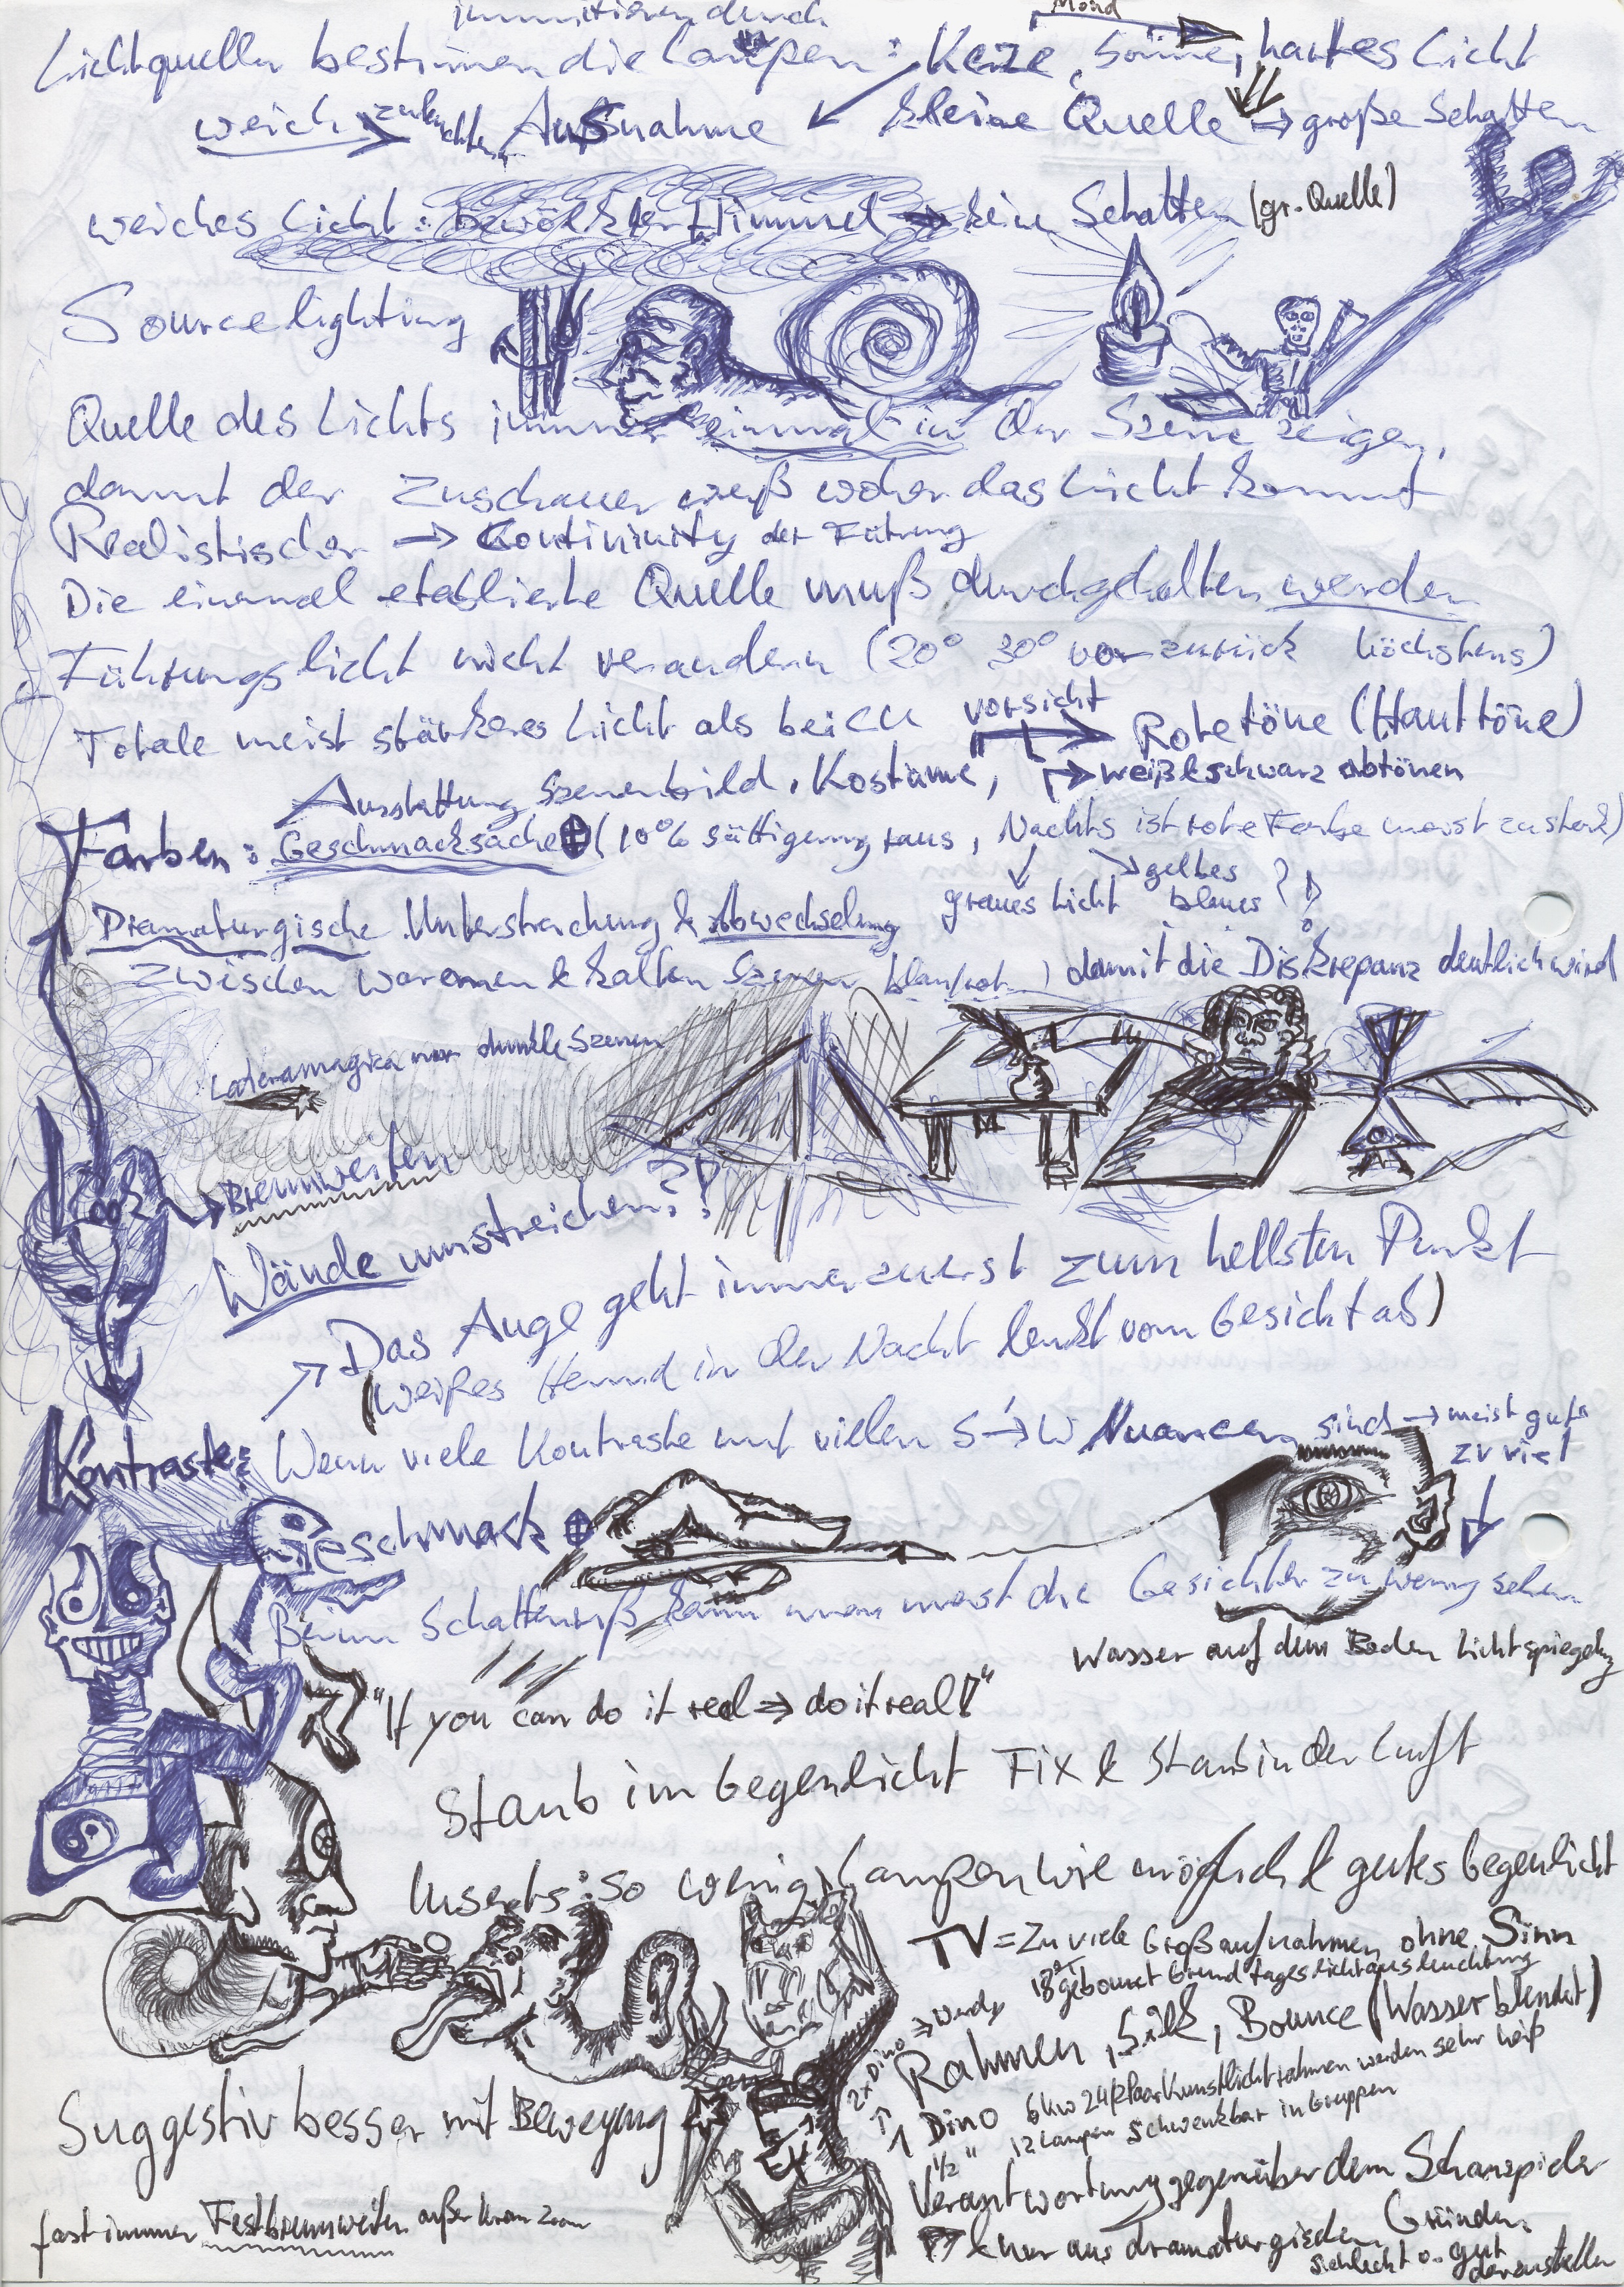 immitieren durch
Mond
Lichtquellen bestimmen die Lampen: Kerze, Sonne, hartes Licht
weich → Aufnahme kleine Quelle → große Schatten
weiches Licht: bewölkter Himmel → keine Schatten (gr. Quelle)
Sourcelighting
Quelle des Lichts immer einmal in der Szene zeigen,
damit der Zuschauer weiß woher das Licht kommt
Realistischer → Continuity der Führung
Die einmal etablierte Quelle muß durchgehalten werden
Führungslicht nicht verändern (20° 30° vor zurück höchstens)
Totale meist stärkeres Licht als bei CU vorsicht → Rotetöne (Hauttöne)
Ausstattung Szenenbild, Kostüme, → weiß & schwarz abtönen
Farben: Geschmacksache (10% sättigung raus, Nachts ist rote Farbe meist zu stark)
graues Licht gelbes blaues ?!
Dramaturgische Unterstreichung & Abwechselung
zwischen warmen & kalten Szenen blau/rot damit die Diskrepanz deutlich wird
Lateramagica nur dunkle Szenen
→ Brennweiten
Wände umstreichen?!
→ Das Auge geht immer zuerst zum hellsten Punkt
(Weißes Hemd in der Nacht lenkt vom Gesicht ab)
Kontraste: Wenn viele Kontraste mit vielen S→W Nuancen sind → meist gut
zu viel
Geschmack
Beim Schattenriß kann man meist die Gesichter zu wenig sehen
Wasser auf dem Boden Lichtspiegelng
"If you can do it real ⇒ do it real!"
Staub im Gegenlicht Fix & Staub in der Luft
Inserts: so wenig Lampen wie möglich & gutes Gegenlicht
TV = Zu viele Großaufnahmen ohne Sinn
gebounct Grund tageslichtausleuchtung
Rahmen, Silk, Bounce (Wasser blendet)
2x Dino ⇒ Wendy
1 Dino 6kw 24 Kunstlichtrahmen werden sehr heiß
1/2 " 12 Lampen schwenkbar in Gruppen
Suggestiv besser mit Bewegung
Verantwortung gegenüber dem Schauspieler
& nur aus dramaturgischen Gründen
schlecht o. gut darzustellen
fast immer Festbrennweiten außer Kran Zoom